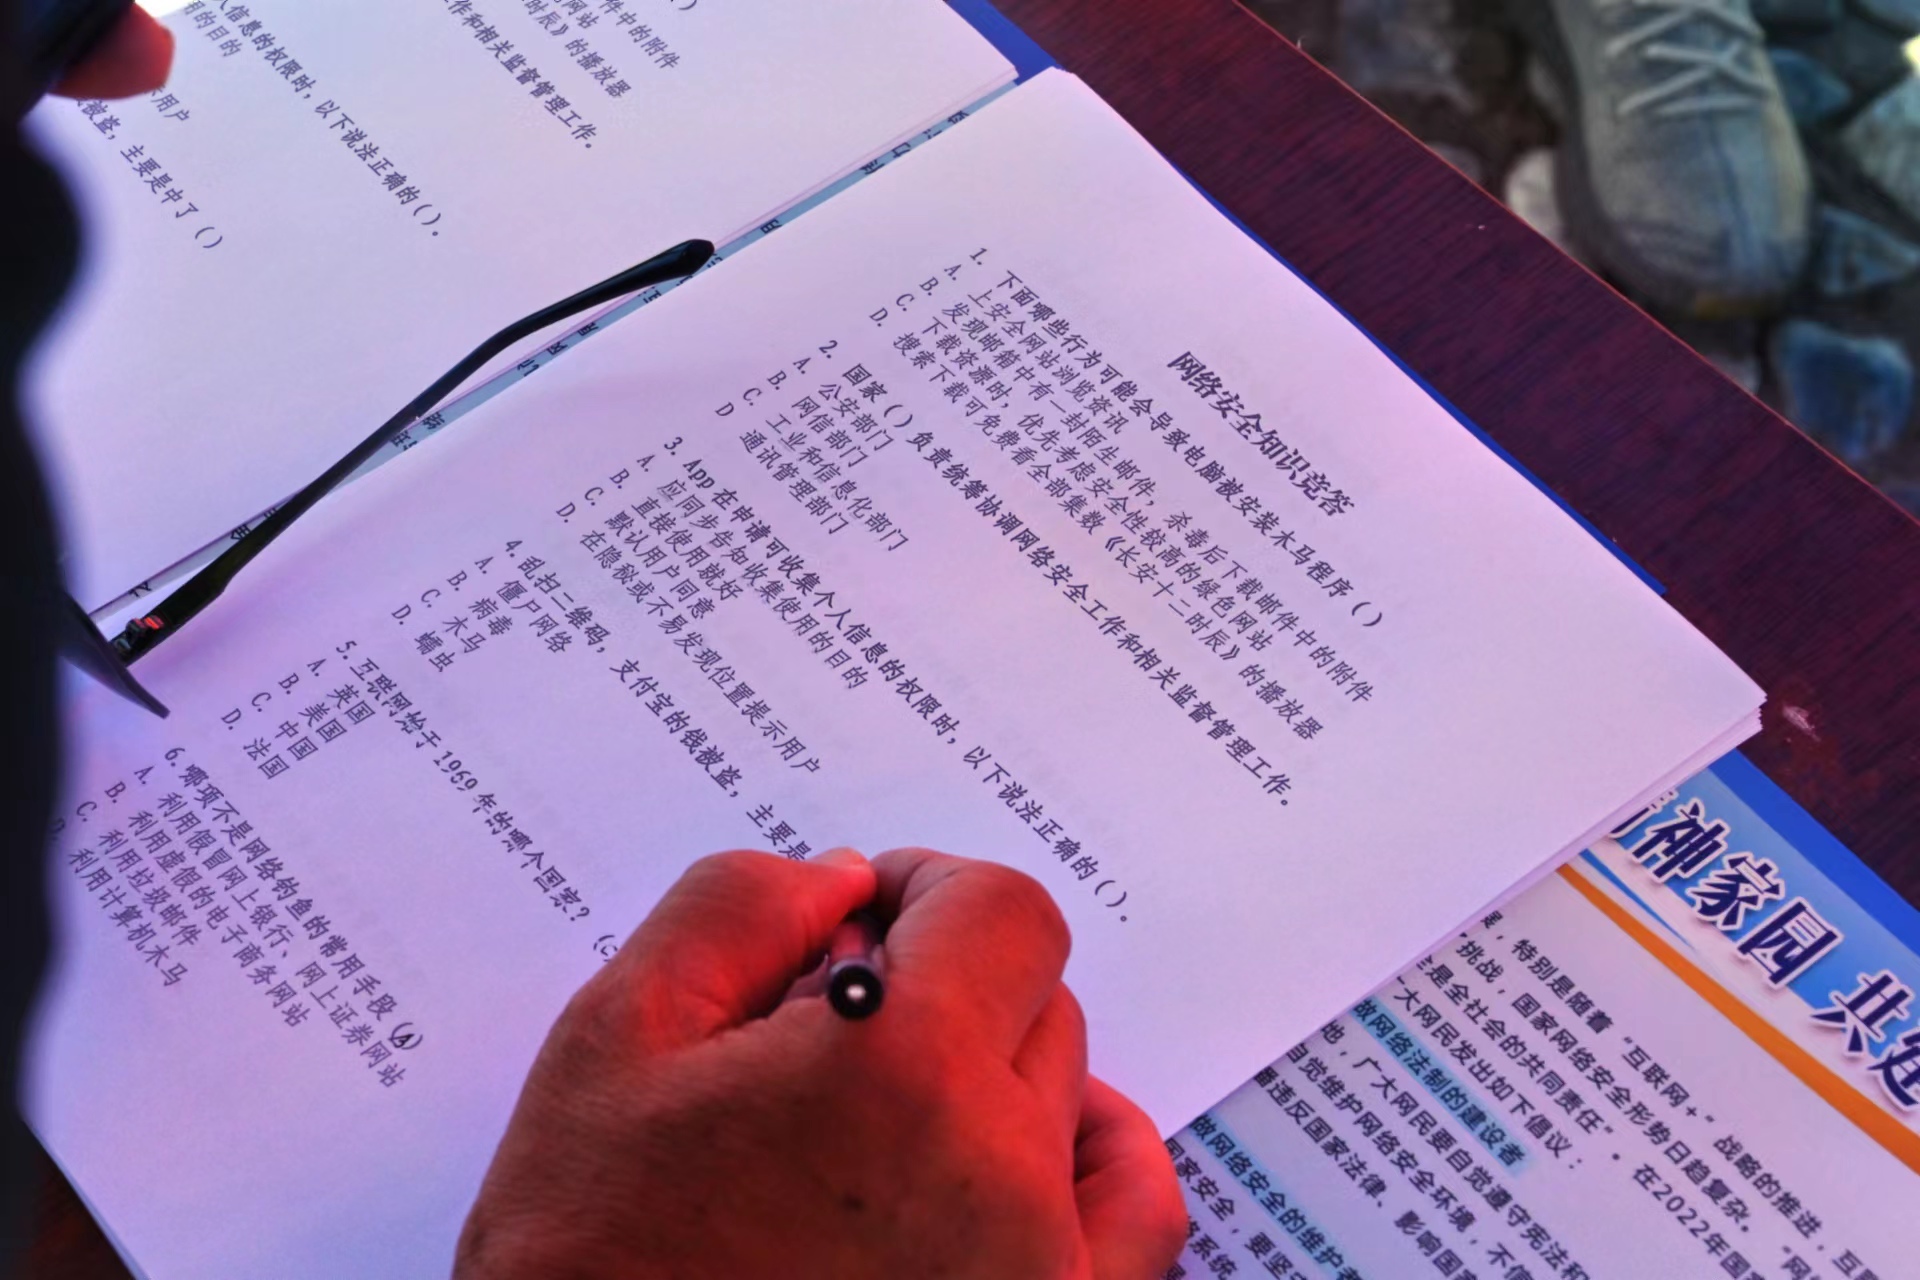 件中的附件
网站
时辰》的播放器
作和相关监督管理工作。
人信息的权限时，以下说法正确的（）。
用的目的
示用户
被盗，主要是中了（）
网络安全知识竞答
1. 下面哪些行为可能会导致电脑被安装木马程序（）
A. 上安全网站浏览资讯
B. 发现邮箱中有一封陌生邮件，杀毒后下载邮件中的附件
C. 下载资源时，优先考虑安全性较高的绿色网站
D. 搜索下载可免费看全部集数《长安十二时辰》的播放器
2. 国家（）负责统筹协调网络安全工作和相关监督管理工作。
A. 公安部门
B. 网信部门
C. 工业和信息化部门
D 通讯管理部门
3. App在申请可收集个人信息的权限时，以下说法正确的（）。
A. 应同步告知收集使用的目的
B. 直接使用就好
C. 默认用户同意
D. 在隐秘或不易发现位置提示用户
4. 乱扫二维码，支付宝的钱被盗，主要是
A. 僵尸网络
B. 病毒
C. 木马
D. 蠕虫
5. 互联网始于1969年的哪个国家？（
A. 英国
B. 美国
C. 中国
D. 法国
6. 哪项不是网络钓鱼的常用手段（）
A. 利用假冒网上银行、网上证券网站
B. 利用虚假的电子商务网站
C. 利用垃圾邮件
D. 利用计算机木马
神家园 共建
特别是随着“互联网+”战略的推进，互
挑战，国家网络安全形势日趋复杂。“网
是全社会的共同责任”。在2022年国
大网民发出如下倡议：
做网络法制的建设者
地，广大网民要自觉遵守宪法和
自觉维护网络安全环境，不信
播违反国家法律、影响国
做网络安全的维护
国家安全，要坚
络系统